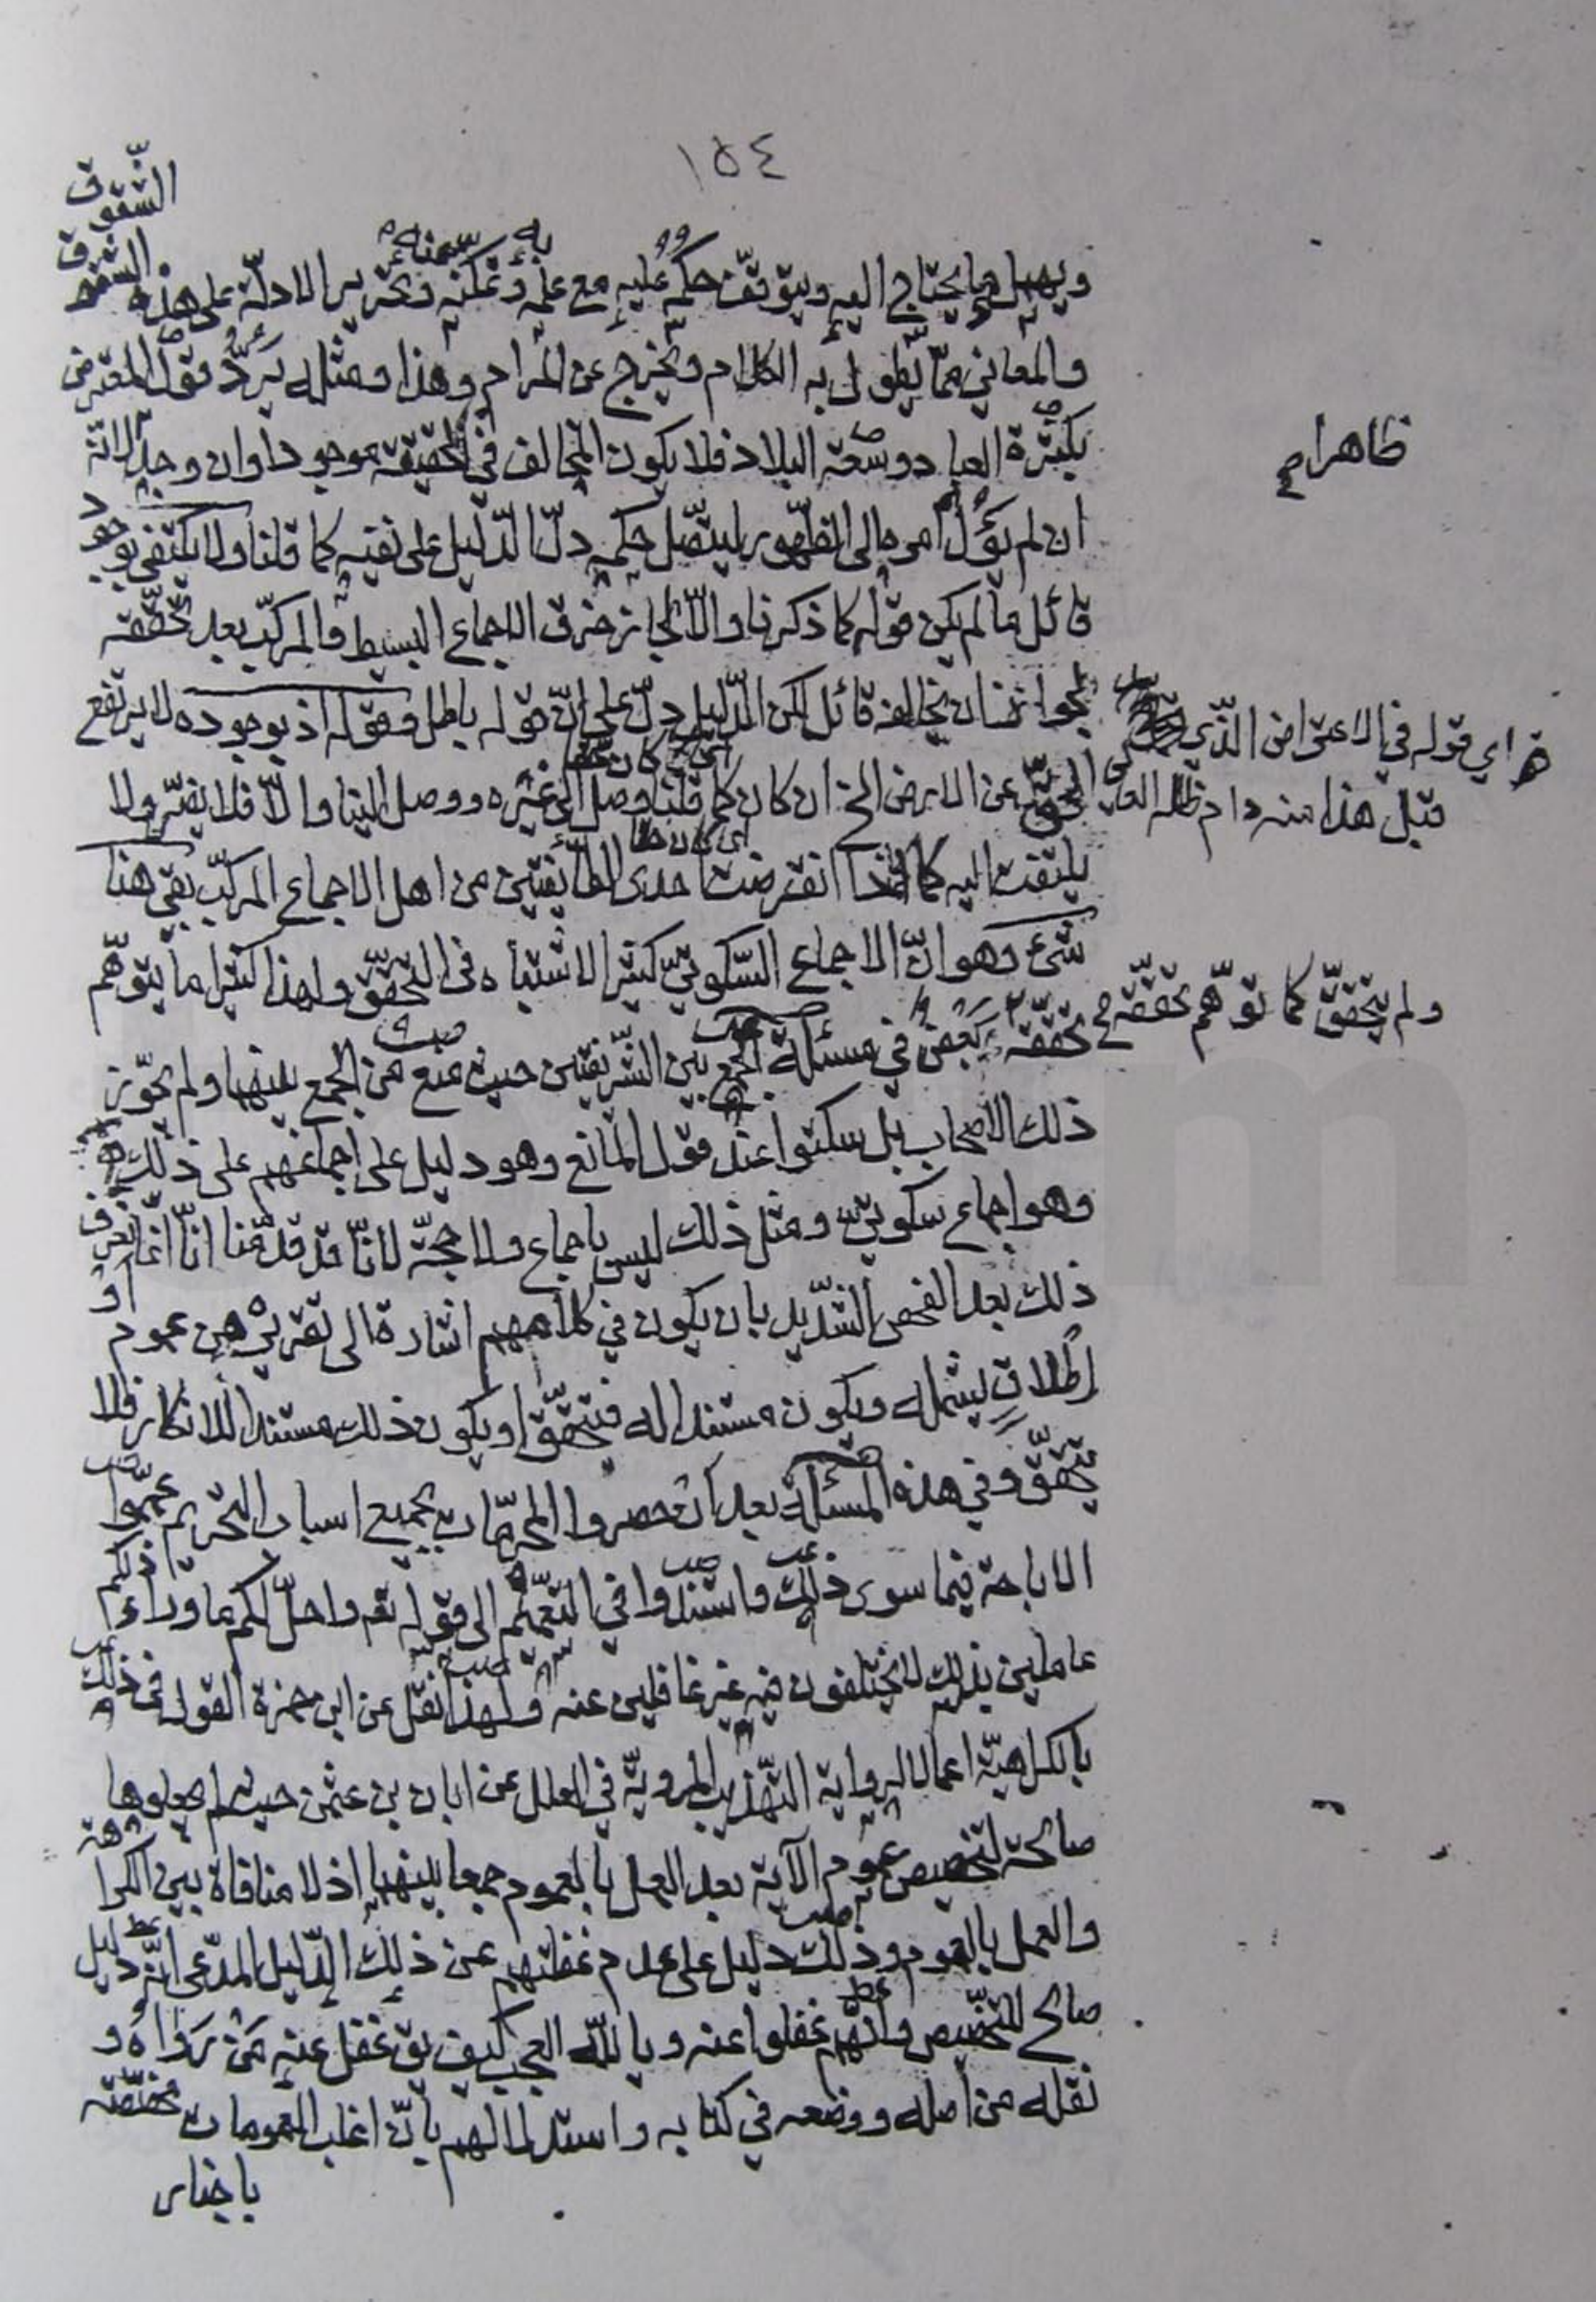 ١٥٤
ويهمل ما يحتاج اليه ويتوقّف حكمه عليه مع علمه وتمكنه وتحرير الادلّة على هذه الشقوق
والمعاني ممّا يطول به الكلام ويخرج عن المرام وهذا ومثله يردّ قول المعترض
بكثرة العباد وسعة البلاد فلا يكون المخالف في الحقيقة موجودا وان وجد لانّه
ظاهرا
ان لم يؤل امره الى الظهور ليتّصل حكمه دلّ الدّليل على نفيه كما قلنا ولا يكتفى بوجود
قائل ما لم يكن قوله كما ذكرنا والّا لجاز خرق الاجماع البسيط والمركّب بعد تحقّقه
لجواز ان يخالفه قائل لكن الدّليل دلّ على انّ قوله باطل وقوله اذ بوجوده لا يرتفع
اي قوله في الاعتراض الذّي
قبل هذا منه دام ظله العالي
الحقّ عن الارض الخ ان كان كما قلنا وصل الى غيره ووصل الينا والّا فلا يضرّ ولا
يلتفت اليه كما اذا انقرضت احدى الطائفتين من اهل الاجماع المركّب بقي هنا
شئ وهو انّ الاجماع السّكوتيّ كثير الاشتباه في التحقّق ولهذا كثيرا ما يتوهّم
ولم يتحقّق كما توهّم تحقّقه
تحقّقه بعض في مسئلة الجمع بين الشّريفتين حيث منع من الجمع بينهما ولم يجوّز
ذلك الاصحاب بل سكتوا عند قول المانع وهو دليل على اجماعهم على ذلك
وهو اجماع سكوتيّ ومثل ذلك ليس باجماع ولا حجّة لانّا قد قدّمنا انّا انّما نعرف
ذلك بعد الفحص الشّديد بان يكون في كلامهم اشارة الى تقريره من عموم او
اطلاق يشمله ويكون مستندا له فيتحقّق او يكون ذلك مستندا للانكار فلا
يتحقّق وفي هذه المسئلة بعد ان حصروا المحرّمات بجميع اسباب التحريم عمّموا
الاباحة فيما سوى ذلك واستندوا في التعميم الى قوله تعم واحلّ لكم ما وراء ذلكم
عاملين بذلك لا يختلفون فيه غير غافلين عنه ولهذا نقل عن ابن حمزة القول في ذلك
بالكراهيّة اعمالا لرواية التهذيب المرويّة في العلل عن ابان بن عثمن حيث لم يجعلوها
صالحة لتخصيص عموم الآية بعد العمل بالعموم جمعا بينهما اذ لا منافاة بين الكراهة
والعمل بالعموم وذلك دليل على عدم غفلتهم عن ذلك الدّليل المدّعى انّه دليل
صالح للتخصيص وانّهم غفلوا عنه ويا للّه العجب كيف يق غفل عنه من رواه و
نقله من اصله ووضعه في كتابه واستدلالهم بانّ اغلب العمومات مخصّصة
باخبار